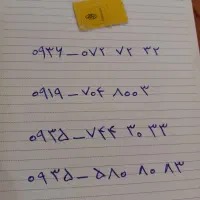 ۰۹۳۶ – ۰۷۲ ۷۲ ۳۲
۰۹۱۹ – ۷۰۴ ۸۰۰۳
۰۹۳۵ – ۷۴۴ ۳۰ ۳۳
۰۹۳۵ – ۵۸۰ ۸۰ ۸۳